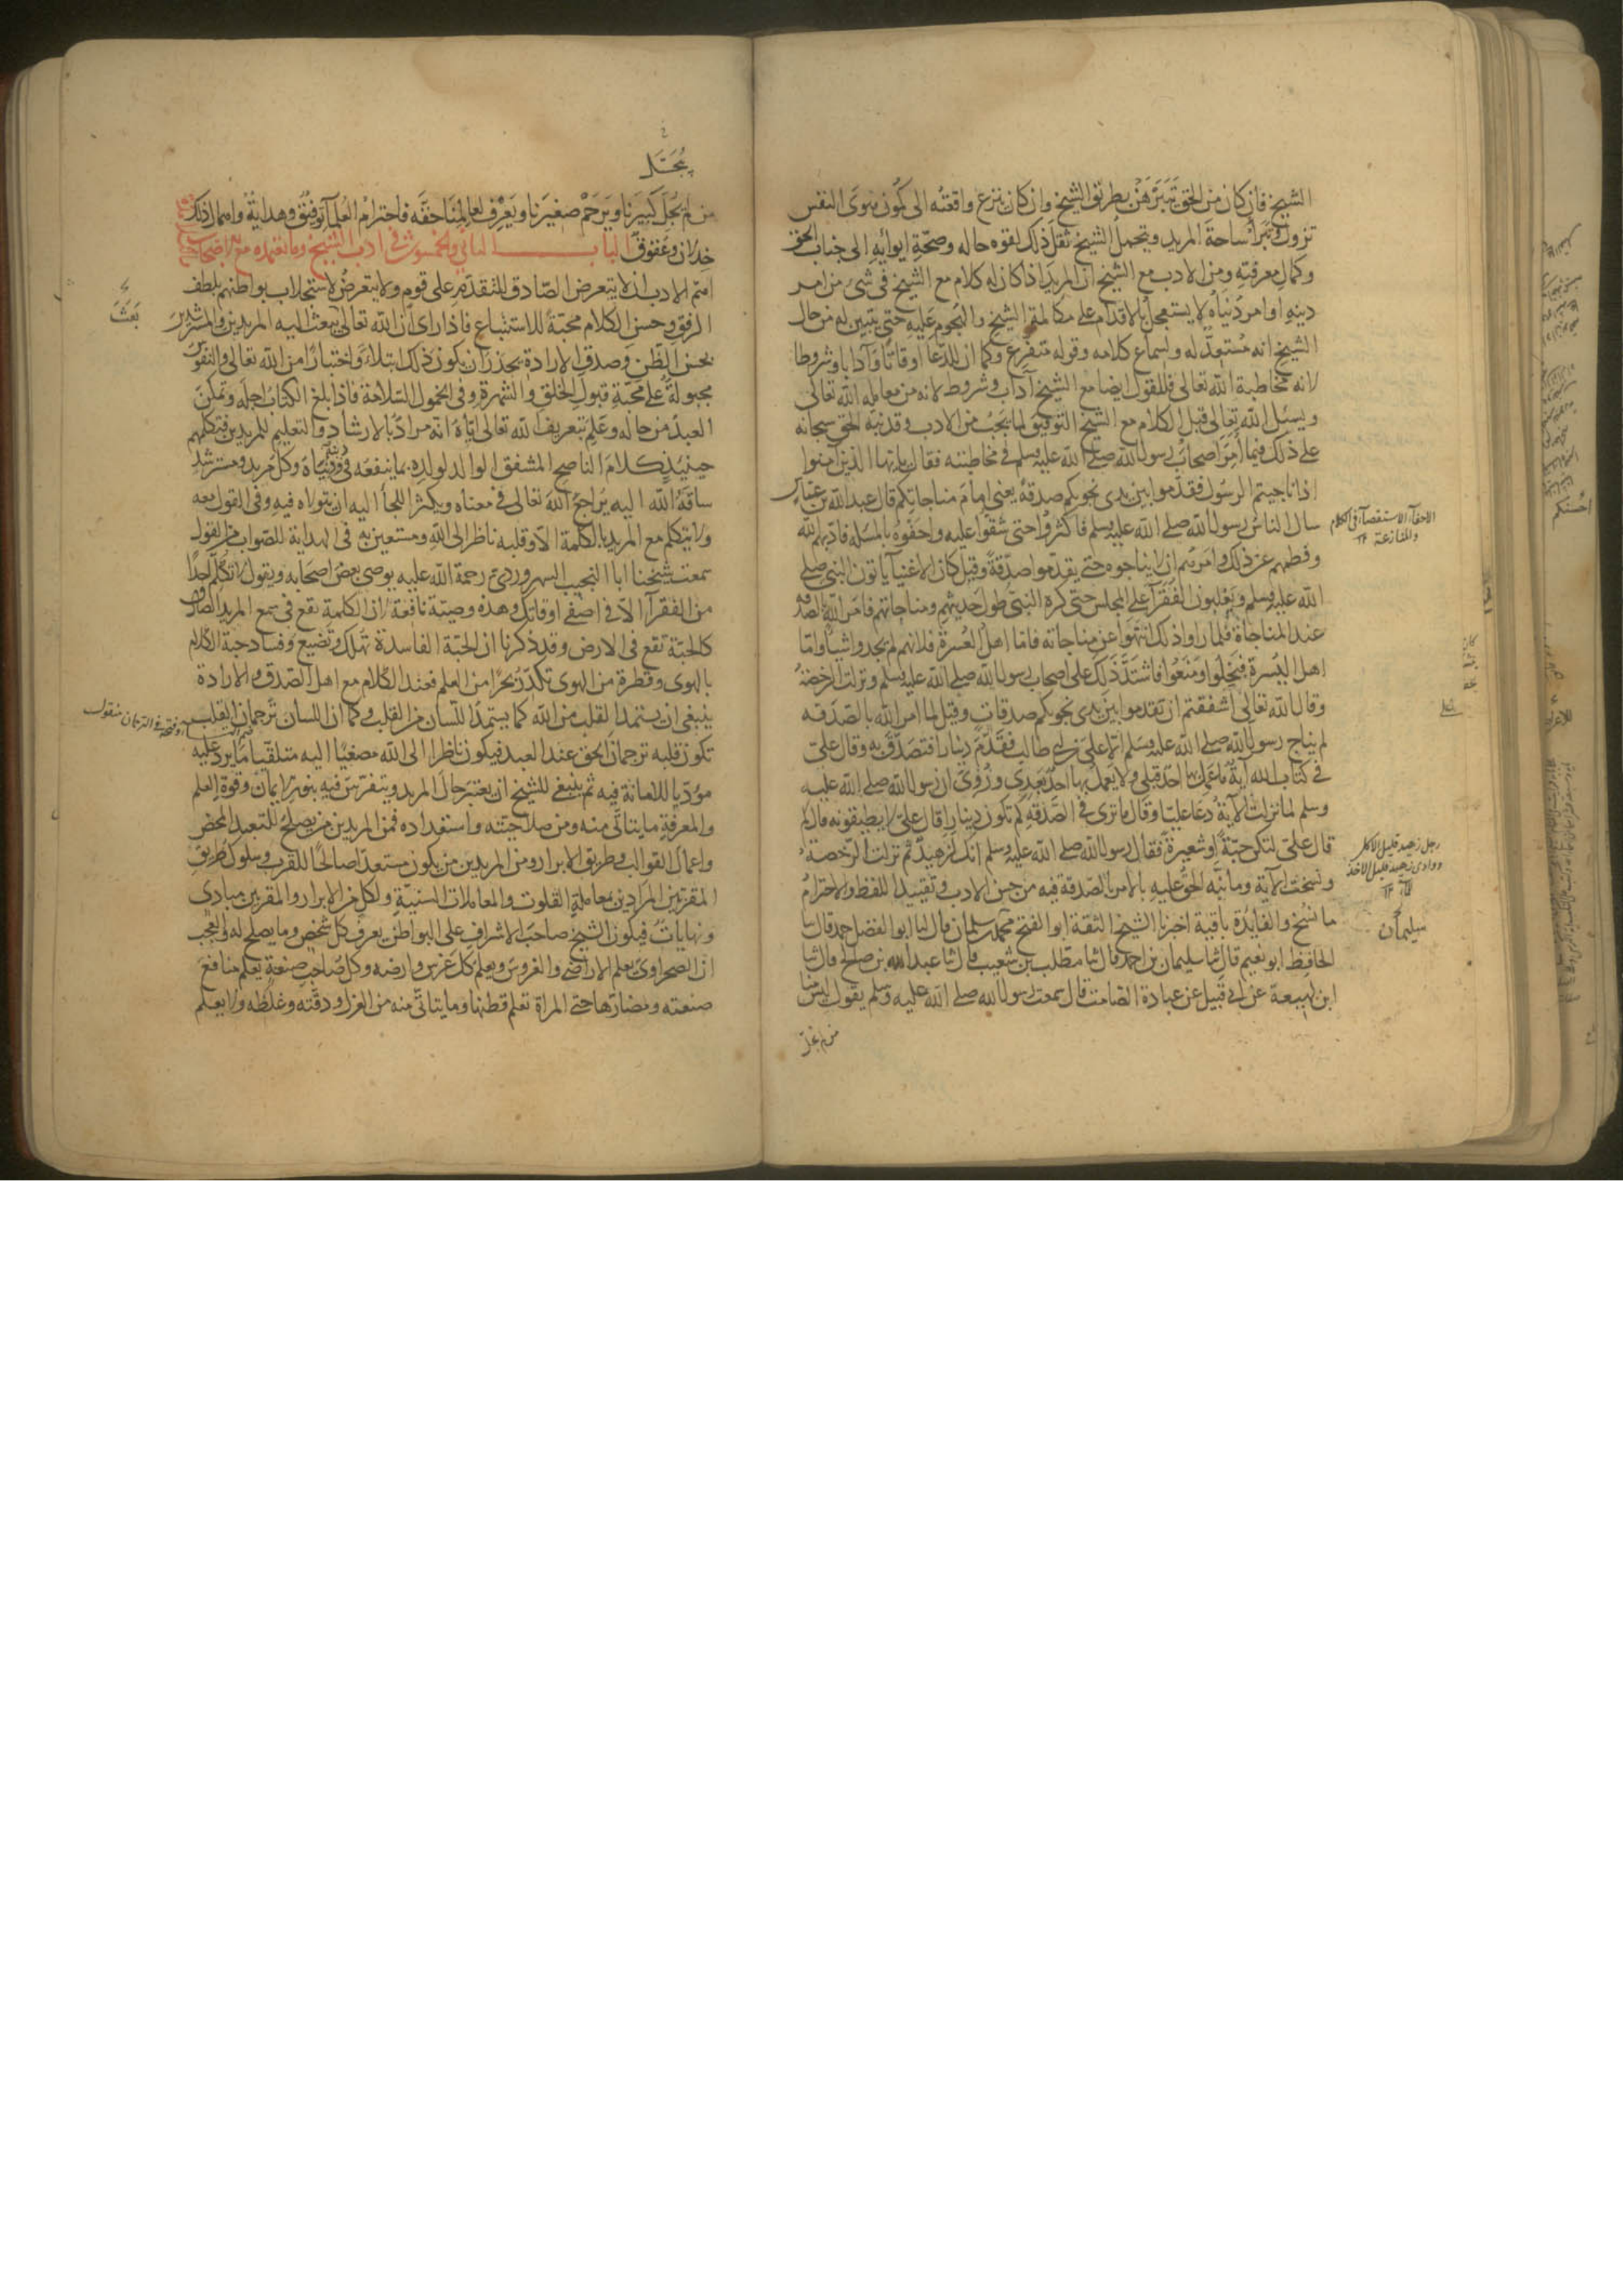 الشيخ فان كان من الحق يتبرهن بطريق الشيخ وان كان ينزع واقعته الى كمون هوى النفس
تزول وتبرأ ساحة المريد ويتحمل الشيخ ثقل ذلك لقوة حاله وصحة ايوائه الى جناب الحق
وكمال معرفته ومن الادب مع الشيخ ان المريد اذا كان له كلام مع الشيخ فى شئ من امر
دينه او امر دنياه لا يستعجل بالاقدام على مكالمة الشيخ والهجوم عليه حتى يتبين له من حال
الشيخ انه مستعد له ولسماع كلامه وقوله متفرغ وكما ان للدعا اوقاتا وآدابا وشروطا
لانه مخاطبة الله تعالى فللقول ايضا مع الشيخ آداب وشروط لانه من معاملة الله تعالى
ويسئل الله تعالى قبل الكلام مع الشيخ التوفيق لما يجب من الادب وقد نبه الحق سبحانه
على ذلك فيما أمر اصحاب رسول الله صلى الله عليه وسلم فى مخاطبته فقال يايها الذين آمنوا
اذا ناجيتم الرسول فقدموا بين يدى نجويكم صدقة يعنى امام مناجاتكم قال عبد الله بن عباس
سال الناس رسول الله صلى الله عليه وسلم فاكثروا حتى شقوا عليه واحفوه بالمسئلة فادبهم الله
وفطمهم عن ذلك وامرهم ان لا يناجوه حتى يقدموا صدقة وقيل كان الاغنيآ ياتون النبى صلى
الله عليه وسلم ويغلبون الفقرآ على المجلس حتى كره النبى طول حديثهم ومناجاتهم فامر الله بالصدقة
عند المناجاة فلما راوا ذلك انتهوا عن مناجاته فاما اهل العسرة فلانهم لم يجدوا شيأ واما
اهل اليسرة فبخلوا ومنعوا فاشتد ذلك على اصحاب رسول الله صلى الله عليه وسلم ونزلت الرخصة
وقال الله تعالى اشفقتم ان تقدموا بين يدى نجويكم صدقات وقيل لما امر الله بالصدقة
لم يناج رسول الله صلى الله عليه وسلم الا على بن ابى طالب فقدم دينارا فتصدق به وقال على
فى كتاب الله آية ما عمل بها احد قبلى ولا يعمل بها احد بعدى وروى ان رسول الله صلى الله عليه
وسلم لما نزلت الآية دعا عليا وقال ما ترى فى الصدقة كم تكون دينارا قال على لا يطيقونه قال كم
قال على لتكن حبة او شعيرة فقال رسول الله صلى الله عليه وسلم انك لزهيد ثم نزلت الرخصة
ونسخت الآية وما نبه الحق عليه بالامر بالصدقة فيه من حسن الادب وتقييد اللفظ والاحترام
ما نسخ والفايدة باقية اخبرنا الشيخ الثقة ابو الفتح محمد بن سلمان قال انا ابو الفضل حمد قال نا
الحافظ ابو نعيم قال ثنا سليمان بن احمد قال ثنا مطلب بن شعيب قال ثنا عبد الله بن صالح قال ثنا
ابن لهيعة عن ابى قبيل عن عبادة الصامت قال سمعت رسول الله صلى الله عليه وسلم يقول ليس منا
من لم يجل
الاحفآ الاستقصآ فى الكلام
والمنازعة ١٢
رجل زهيد قليل الاكل
ووادى زهيد قليل الاخذ
سليمان
يُبَجِّل
من لم يجل كبيرنا ويرحم صغيرنا ويعرف لعالمنا حقه فاحترام العلمآ توفيق وهداية واهمال ذلك
خذلان وعقوق الباب الثانى والخمسون فى ادب الشيخ وما يعتمده مع الاصحاب
اهم الادب ان لا يتعرض الصادق للتقدم على قوم ولا يتعرض لاستجلاب بواطنهم بلطف
الرفق وحسن الكلام محبة للاستتباع فاذا راى ان الله تعالى يبعث اليه المريدين والمسترشدين
بحسن الظن وصدق الارادة يحذر ان يكون ذلك ابتلاء واختبارا من الله تعالى والنفوس
مجبولة على محبة قبول الخلق والشهرة وفى الخمول السلامة فاذا بلغ الكتاب اجله وتمكن
العبد من حاله وعلم بتعريف الله تعالى اياه انه مراد بالارشاد والتعليم للمريدين فيكلمهم
حينئذ كلام الناصح المشفق الوالد لولده بما ينفعه فى دينه ودنياه وكل مريد ومسترشد
ساقه الله اليه يراجع الله تعالى فى معناه ويكثر اللجأ اليه ان يتولاه فيه وفى القول معه
ولا يتكلم مع المريد بالكلمة الا وقلبه ناظر الى الله ومستعين به فى الهداية للصواب من القول
سمعت شيخنا ابا النجيب السهروردى رحمة الله عليه يوصى بعض اصحابه ويقول لا تكلم احدا
من الفقرآ الا فى اصفى اوقاتك وهذه وصية نافعة لان الكلمة تقع فى سمع المريد الصادق
كالحبة تقع فى الارض وقد ذكرنا ان الحبة الفاسدة تهلك وتضيع وفساد حبة الكلام
بالهوى وقطرة من الهوى تكدر بحرا من العلم فعند الكلام مع اهل الصدق والارادة
ينبغى ان يستمد القلب من الله كما يستمد اللسان من القلب وكما ان اللسان ترجمان القلب
تكون قلبه ترجمان الحق عند العبد فيكون ناظرا الى الله مصغيا اليه متلقيا ما يرد عليه
مؤديا للامانة فيه ثم ينبغى للشيخ ان يعتبر حال المريد ويتفرس فيه بنور الايمان وقوة العلم
والمعرفة ما يتاتى منه ومن صلاحيته واستعداده فمن المريدين من يصلح للتعبد المحض
واعمال القوالب وطريق الابرار ومن المريدين من يكون مستعدا صالحا للقرب وسلوك طريق
المقربين المرادين بمعاملة القلوب والمعاملات السنية ولكل من الابرار والمقربين مبادى
ونهايات فيكون الشيخ صاحب الاشراف على البواطن يعرف كل شخص وما يصلح له والعجب
ان الصحراوى يعلم الاراضى والغروس ويعلم كل غرس وارضه وكل صاحب صنعة يعلم منافع
صنعته ومضارها حتى المراة تعلم قطنها وما يتاتى منه من الغزل ودقته وغلظه ولا يعلم
بَعَثَ